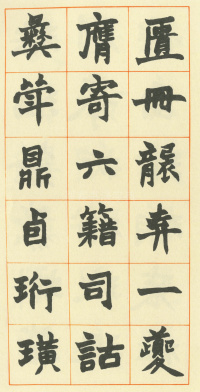 匱冊襲弆一夔
膺寄六籍司詁
彝鼎卣珩璜